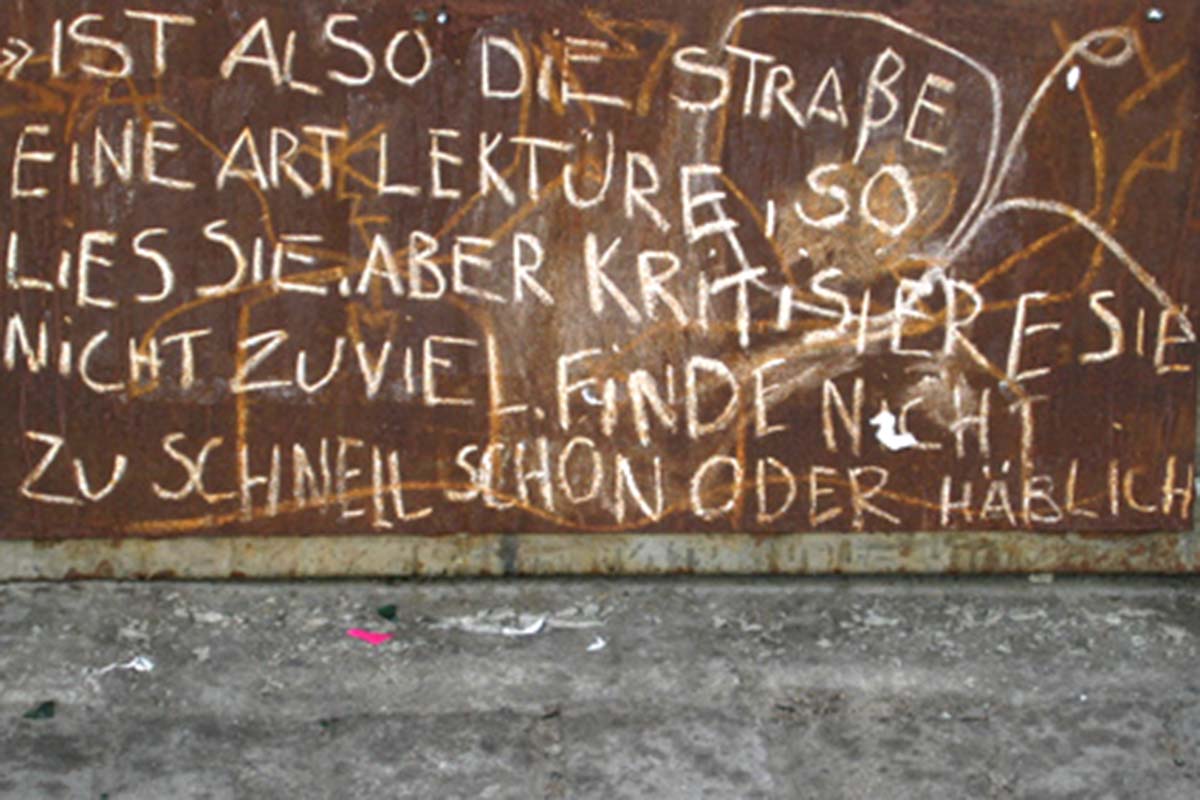 »IST ALSO DIE STRAßE
EINE ART LEKTÜRE, SO
LIES SIE, ABER KRITISIERE SIE
NICHT ZUVIEL. FINDE NICHT
ZU SCHNELL SCHÖN ODER HÄßLICH